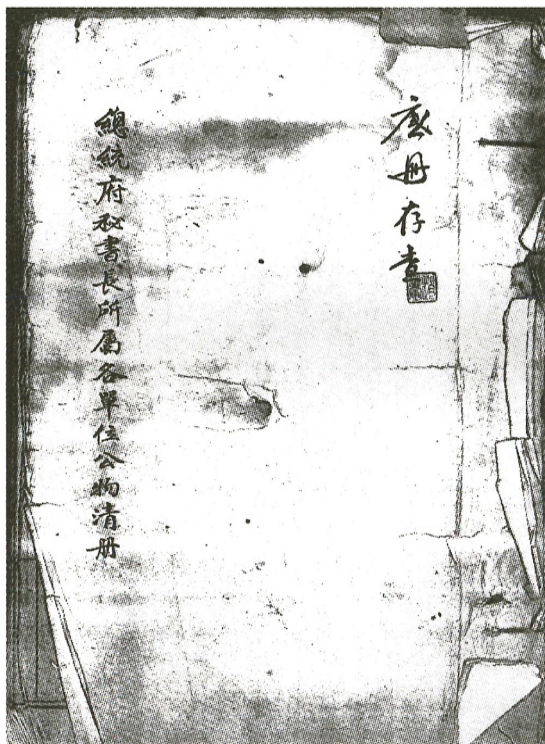 底册存查
總統府秘書長所屬各單位公物清册